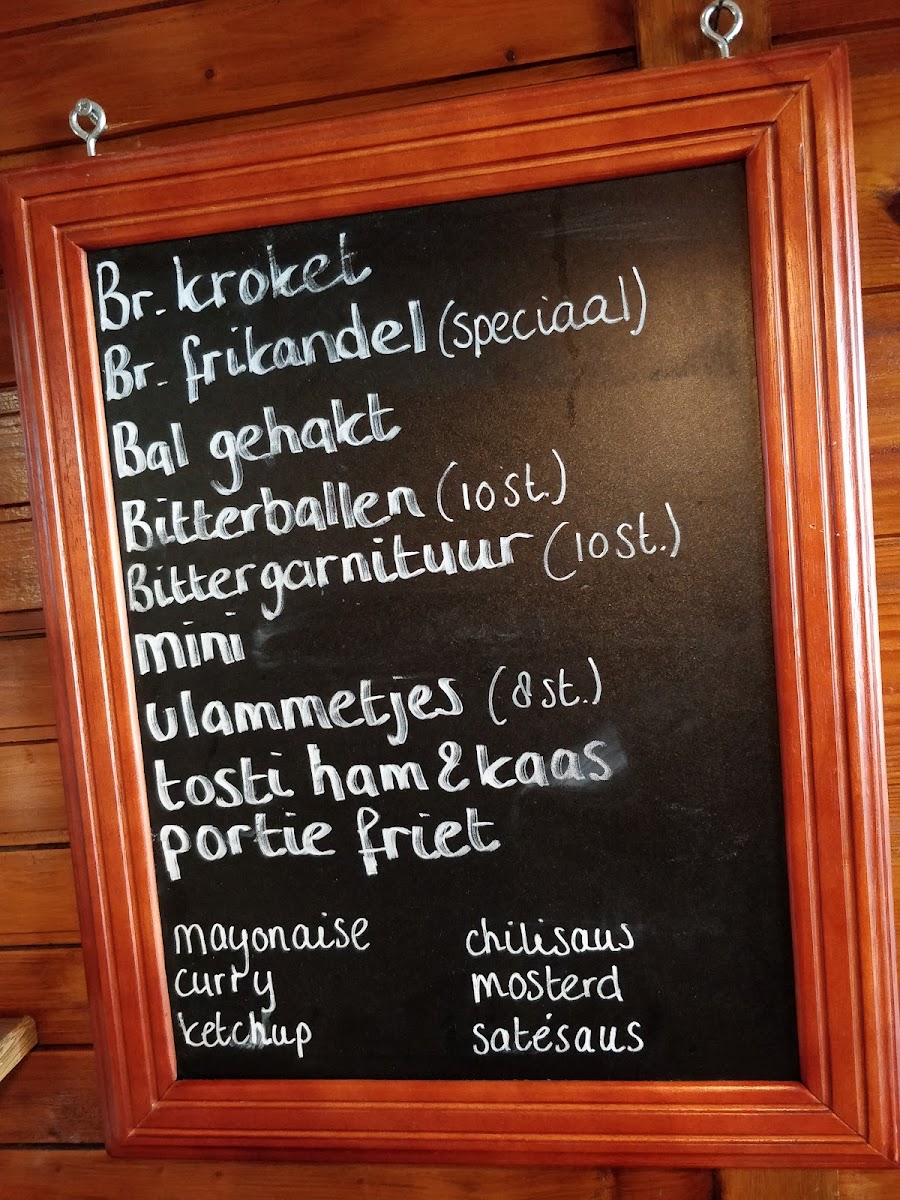 Br. kroket
Br. frikandel (speciaal)
Bal gehakt
Bitterballen (10 st.)
Bittergarnituur (10 st.)
mini
vlammetjes (8 st.)
tosti ham & kaas
portie friet
mayonaise
curry
ketchup
chilisaus
mosterd
satésaus